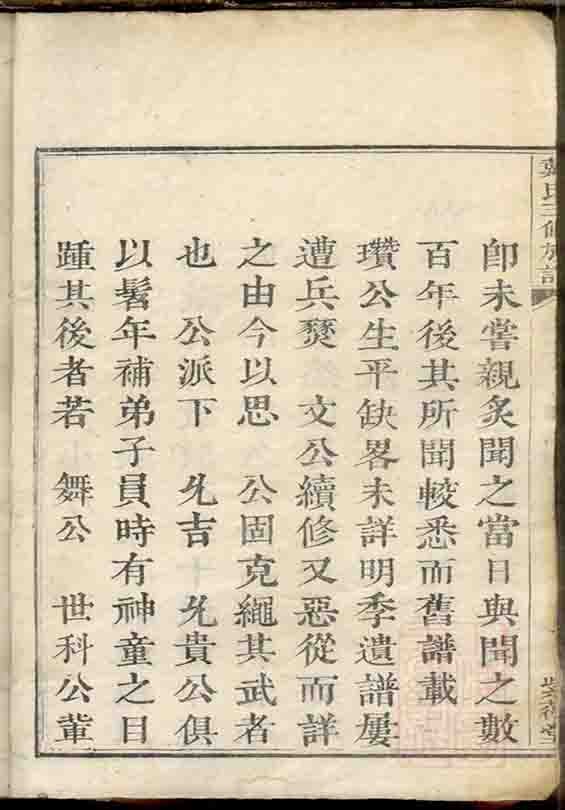 氏三修族譜
即未嘗親炙聞之當日與聞之數
百年後其所聞較悉而舊譜載
瓚公生平缺畧未詳明季遺譜屢
遭兵燹　文公續修又惡從而詳
之由今以思　公固克繩其武者
也　公派下　允吉　允貴公俱
以髫年補弟子員時有神童之目
踵其後者若　舞公　世科公輩